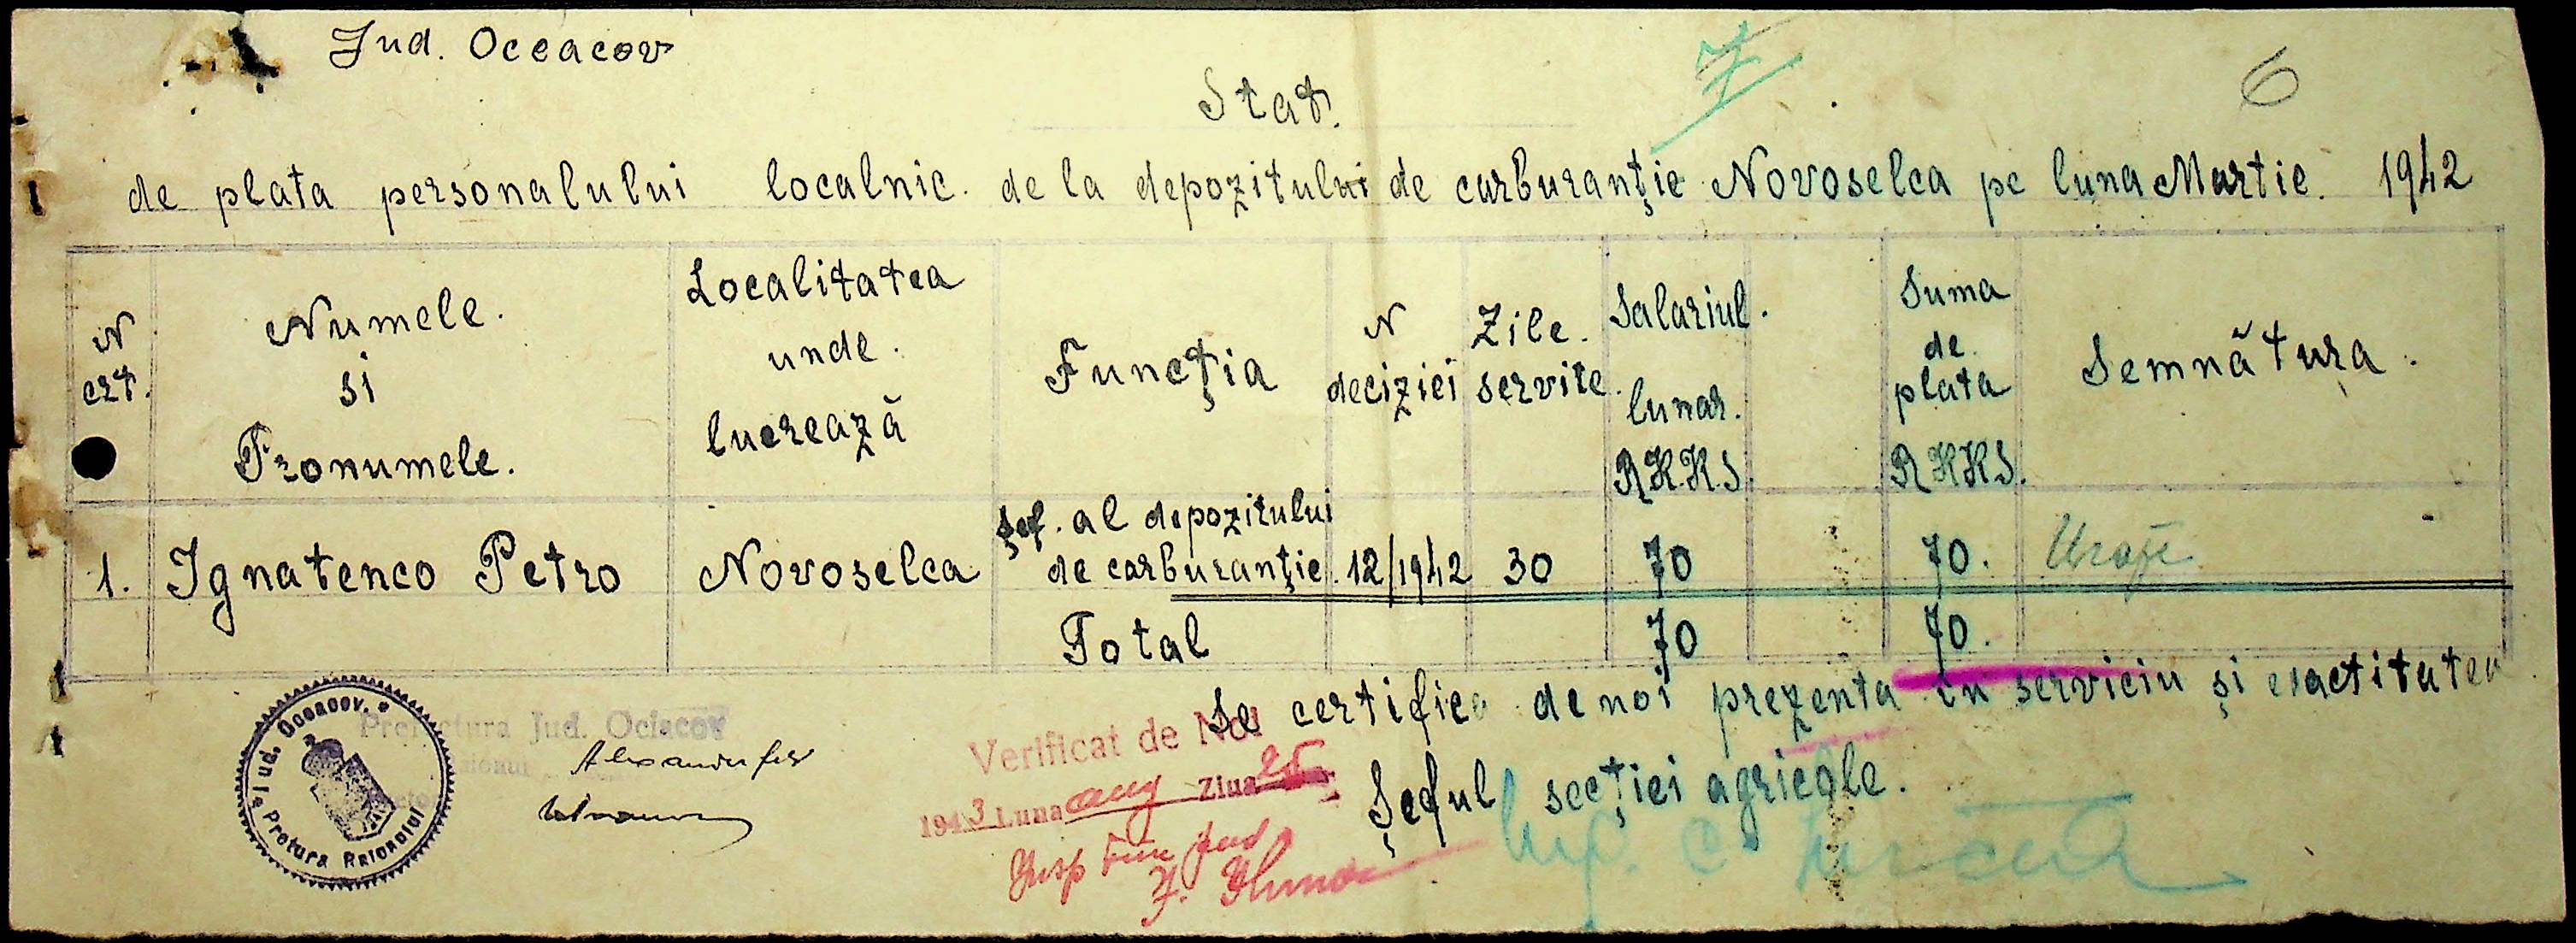 Jud. Oceacov
7
6
Stat.
de plata personalului localnic. de la depozitului de carburanţie Novoselca pe luna Martie. 1942
N crt.
Numele. si Pronumele.
Localitatea unde. lucrează
Funcţia
N deciziei
Zile. servite.
Salariul. lunar. RKKS.
Suma de plata RKKS.
Semnătura.
1. Ignatenco Petro Novoselca şef. al depozitului de carburanţie. 12/1942 30 70 70.
Total 70 70.
Se certifica de noi prezenta in serviciu şi exactitatea
Şeful secţiei agricole.
Prefectura Jud. Ociacov
Jud. Oceacov. Pretura Raionului
Verificat de Noi
1943 Luna aug Ziua 25